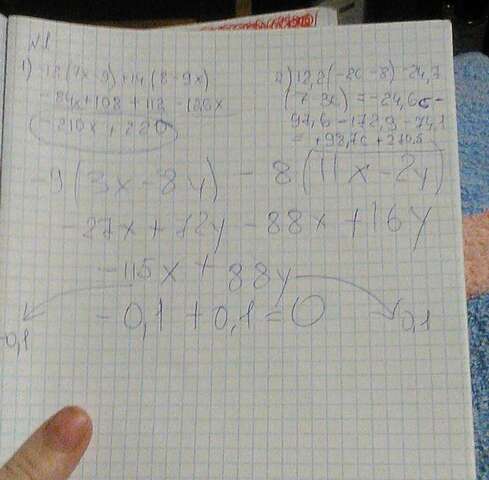 N1
1) -12(7x-9)+14(8-9x)
-84x+108+112-126x
-210x+220
2) 12,3(-2c-8)-24,7
(7-3c)=-24,6c-
=+98,7c+
-9(3x-8y)-8(11x-2y)
-27x+72y-88x+16y
-115x+88y
-0,1+0,1=0
-0,1
0,1